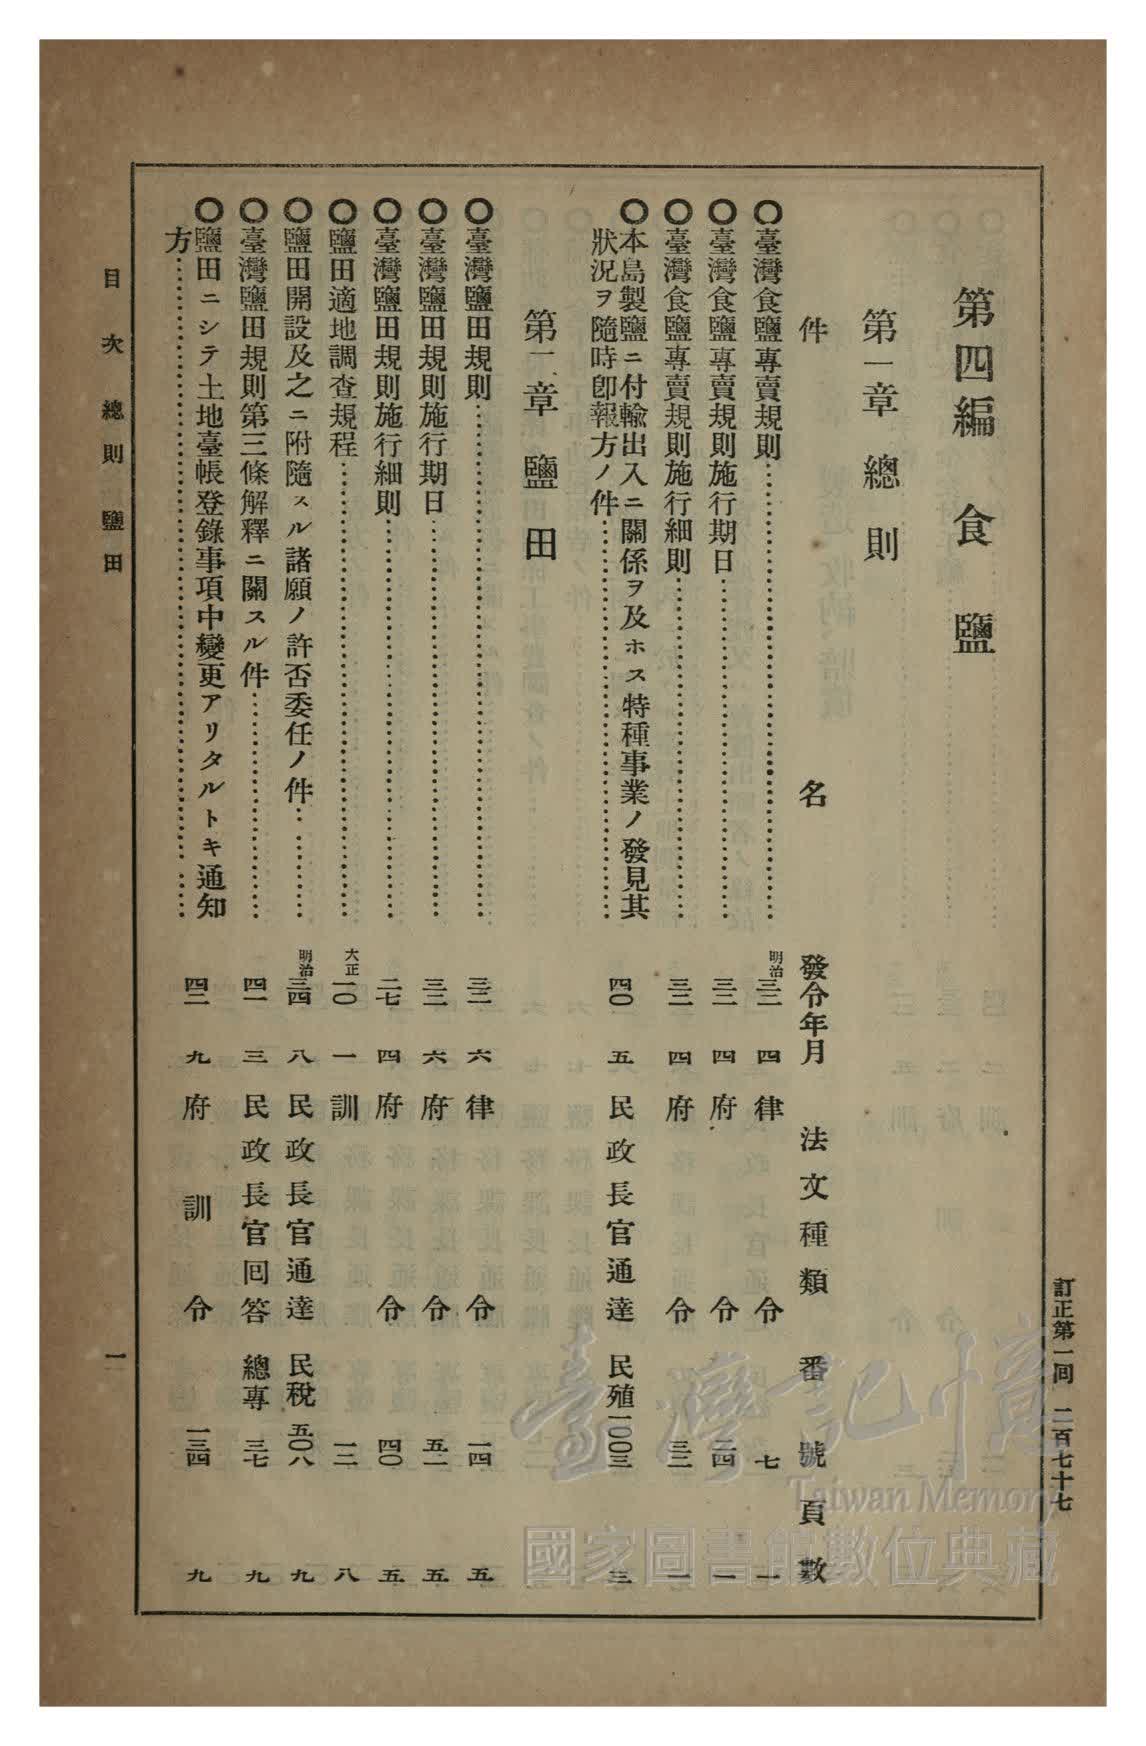 訂正第一回 二百七十七
第四編 食鹽
第一章 總則
件名 發令年月 法文種類 番號 頁數
〇臺灣食鹽專賣規則 明治三二 四 律令 七 一
〇臺灣食鹽專賣規則施行期日 三二 四 府令 二四 一
〇臺灣食鹽專賣規則施行細則 三二 四 府令 三二 一
〇本島製鹽ニ付輸出入ニ關係ヲ及ホス特種事業ノ發見其
狀況ヲ隨時卽報方ノ件 四〇 五 民政長官通達 民殖一〇〇三 三
第二章 鹽田
〇臺灣鹽田規則 三二 六 律令 一四 五
〇臺灣鹽田規則施行期日 三二 六 府令 五一 五
〇臺灣鹽田規則施行細則 二七 四 府令 四〇 五
〇鹽田適地調查規程 大正一〇 一 訓 一二 八
〇鹽田開設及之ニ附隨スル諸願ノ許否委任ノ件 明治三四 八 民政長官通達 民稅五〇八 九
〇臺灣鹽田規則第三條解釋ニ關スル件 四一 三 民政長官回答 總專三七 九
〇鹽田ニシテ土地臺帳登錄事項中變更アリタルトキ通知
方 四二 九 府訓令 一三四 九
目次 總則 鹽田
一
臺灣記憶
Taiwan Memory
國家圖書館數位典藏